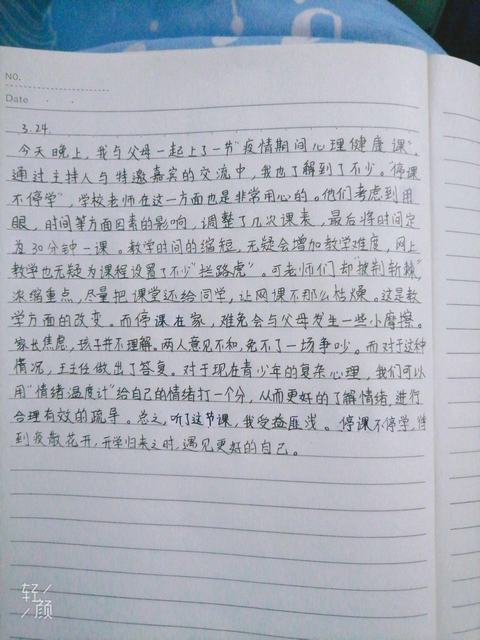 NO.
Date
3.24.
今天晚上，我与父母一起上了一节"疫情期间心理健康课"，
通过主持人与特邀嘉宾的交流中，我也了解到了不少。"停课
不停学"，学校老师在这一方面也是非常用心的。他们考虑到用
眼，时间等方面因素的影响，调整了几次课表，最后将时间定
为30分钟一课。教学时间的缩短，无疑会增加教学难度，网上
教学也无疑为课程设置了不少"拦路虎"。可老师们却"披荆斩棘"，
浓缩重点，尽量把课堂还给同学，让网课不那么枯燥。这是教
学方面的改变。而停课在家，难免会与父母发生一些小摩擦。
家长焦虑，孩子并不理解。两人意见不和，免不了一场争吵。而对于这种
情况，王主任做出了答复。对于现在青少年的复杂心理，我们可以
用"情绪温度计"给自己的情绪打一个分，从而更好的了解情绪，进行
合理有效的疏导。总之，听了这节课，我受益匪浅。停课不停学，待
到疫散花开，开学归来之时，遇见更好的自己。
轻
颜